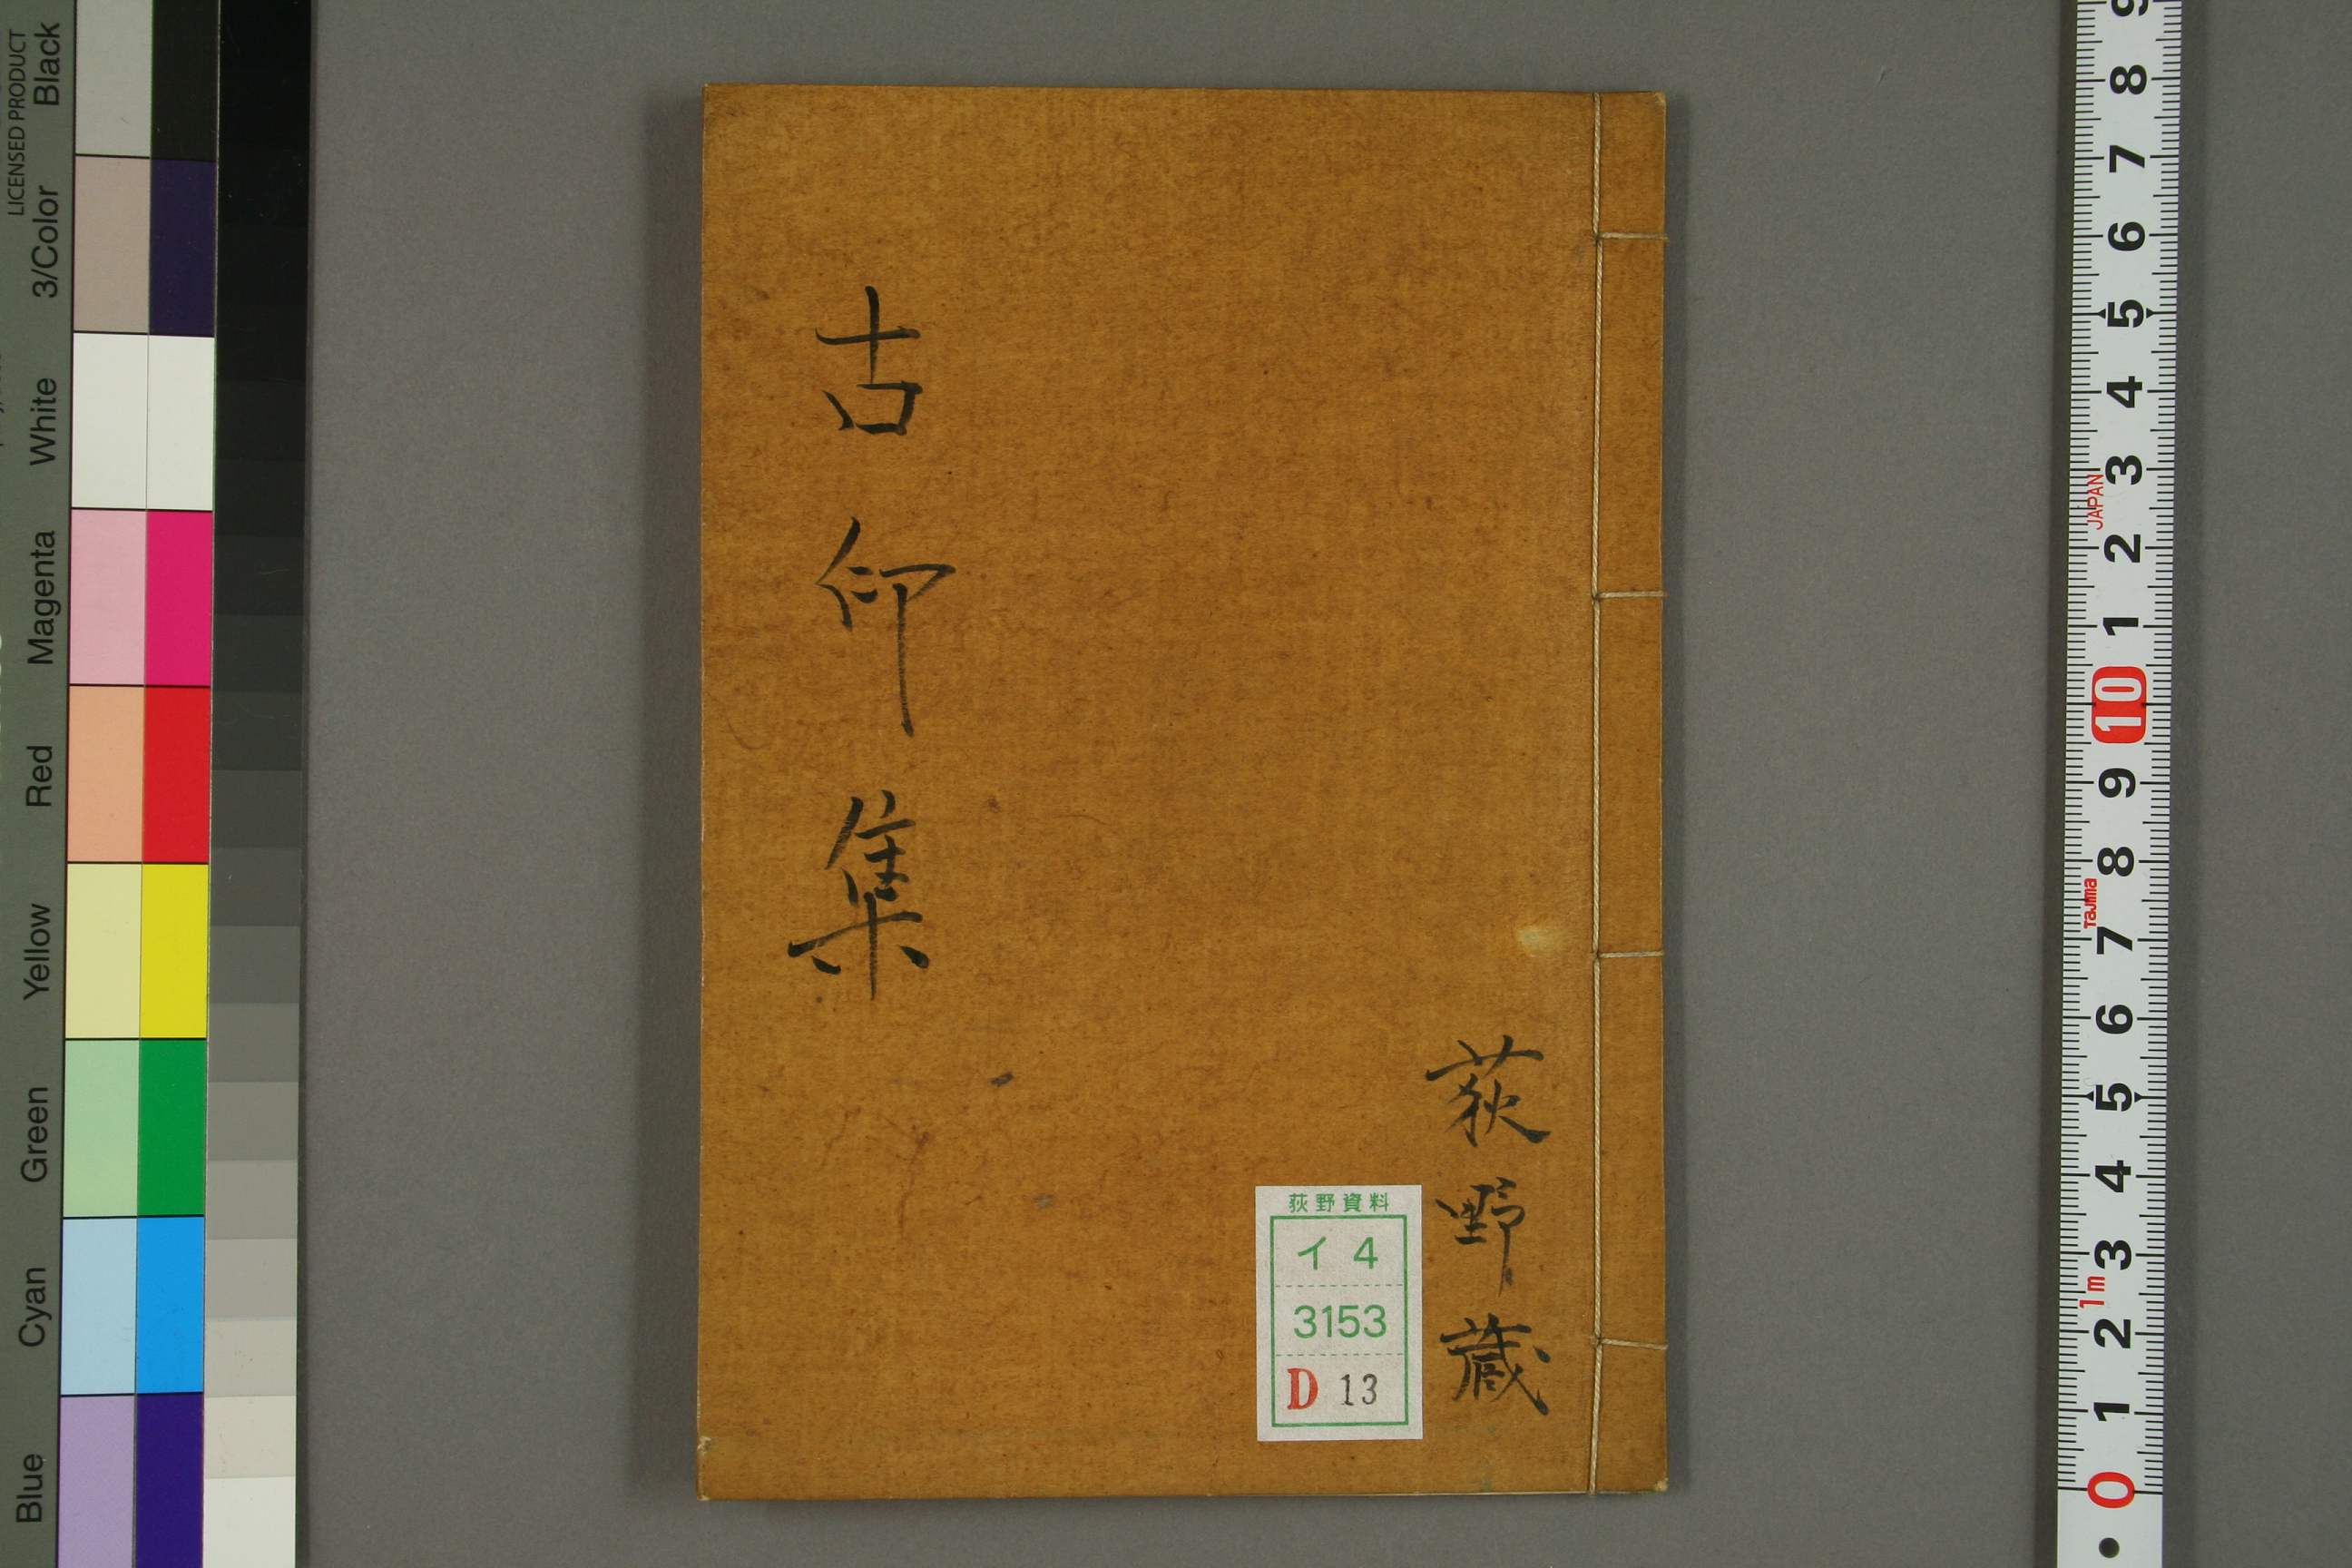 古印集
荻野蔵
荻野資料
イ 4
3153
D 13
LICENSED PRODUCT
Black
3/Color
White
Magenta
Red
Yellow
Green
Cyan
Blue
9
8
7
6
5
4
3
JAPAN
2
1
10
9
8
Tajima
7
6
5
4
3
1m
2
1
0